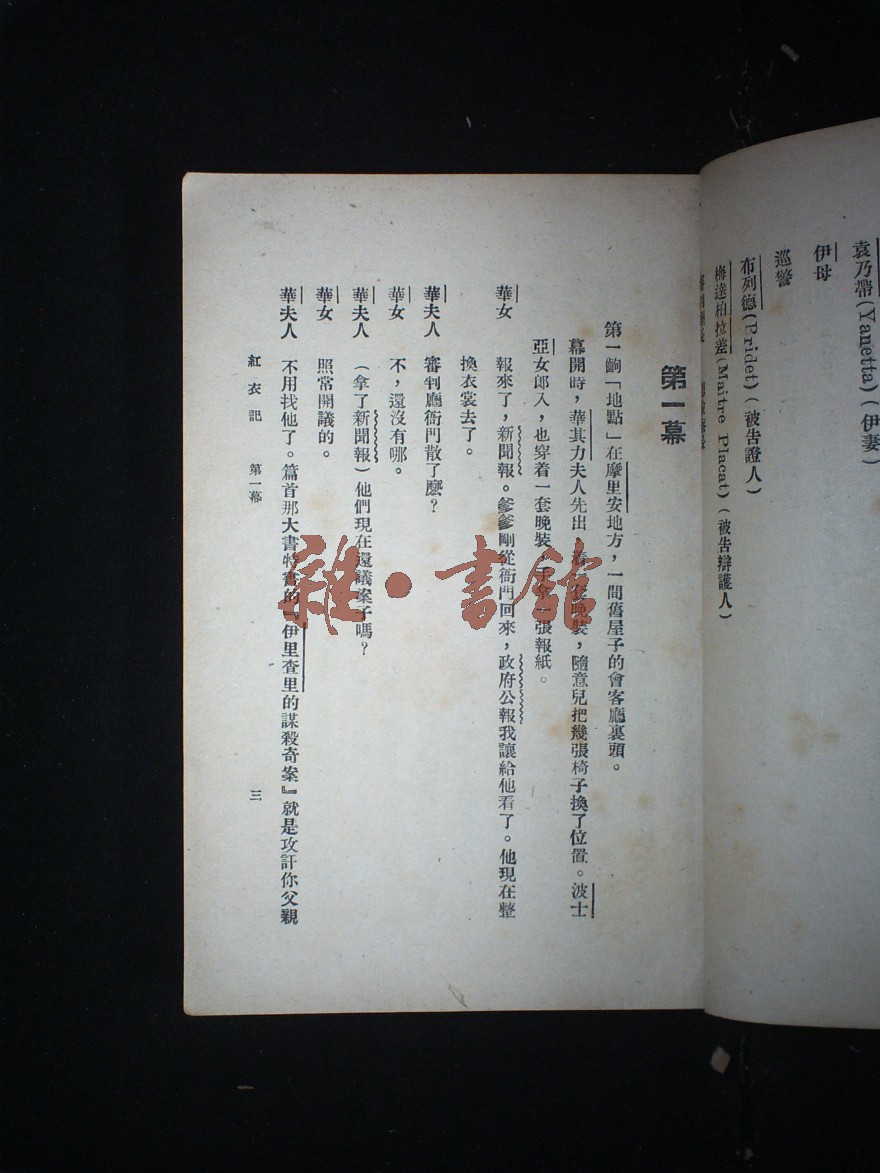 袁乃帶(Yanetta)(伊妻)
伊母
巡警
布列德(Bridet)(被告證人)
梅達柏拉差(Maitre Placat)(被告辯護人)
第一幕
第一齣「地點」在摩里安地方，一間舊屋子的會客廳裏頭。
幕開時，華其力夫人先出 晚裝，隨意兒把幾張椅子換了位置。波士
亞女郎入，也穿着一套晚裝 手拿一張報紙。
華女 報來了，新聞報。爹爹剛從衙門回來，政府公報我讓給他看了。他現在整
換衣裳去了。
華夫人 審判廳衙門散了麼？
華女 不，還沒有哪。
華夫人 (拿了新聞報)他們現在還議案子嗎？
華女 照常開議的。
華夫人 不用找他了。篇首那大書特書的『伊里查里的謀殺奇案』就是攻訐你父親
紅衣記 第一幕 三
雜·書館